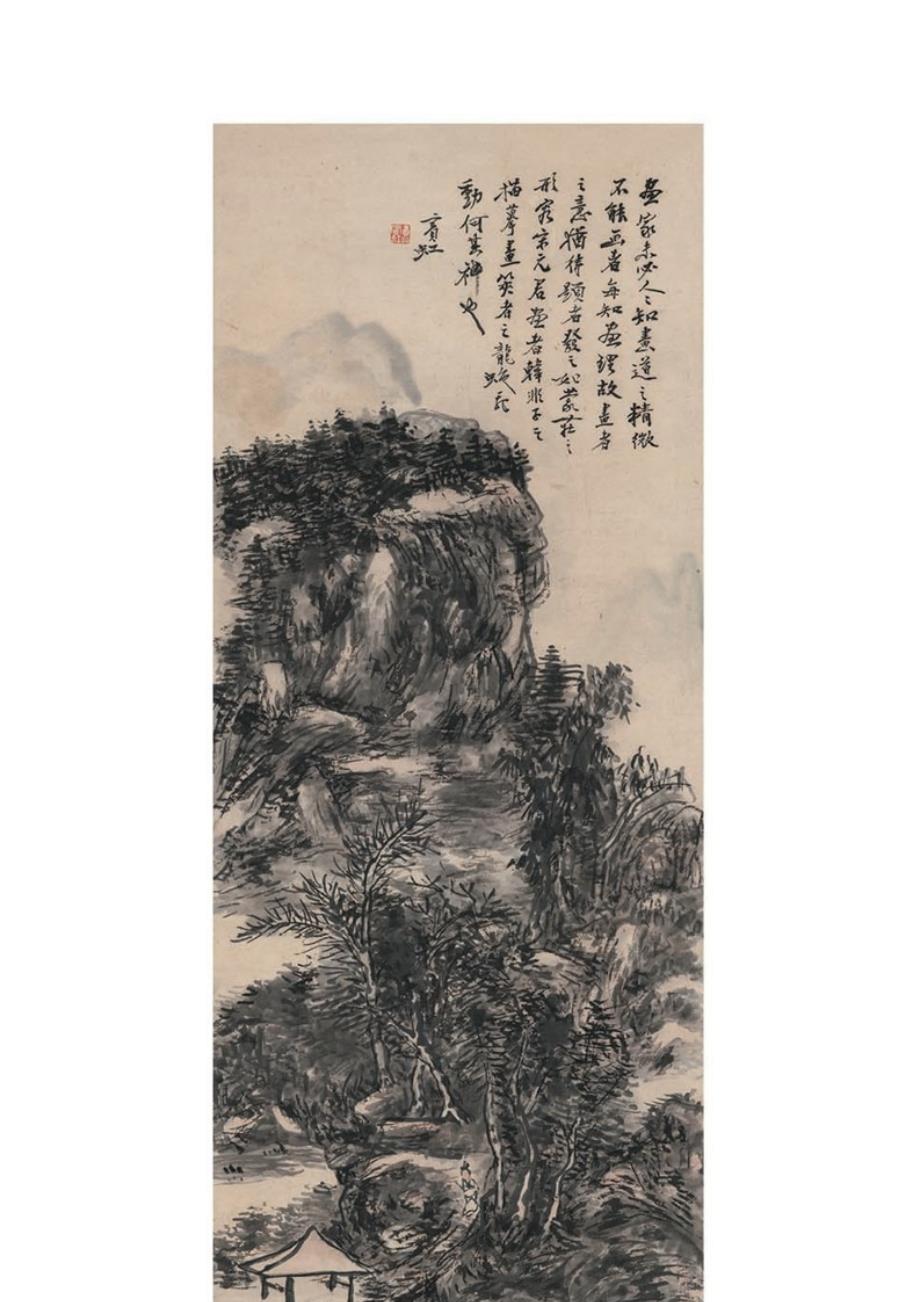 畫家未必人人知畫道之精微
不能畫者每知畫理故畫者
之意猶待題者發之如蒙莊之
形容宋元君畫者韓非子之
描摹畫筴者之龍蛇飛
動何其神也
賓虹